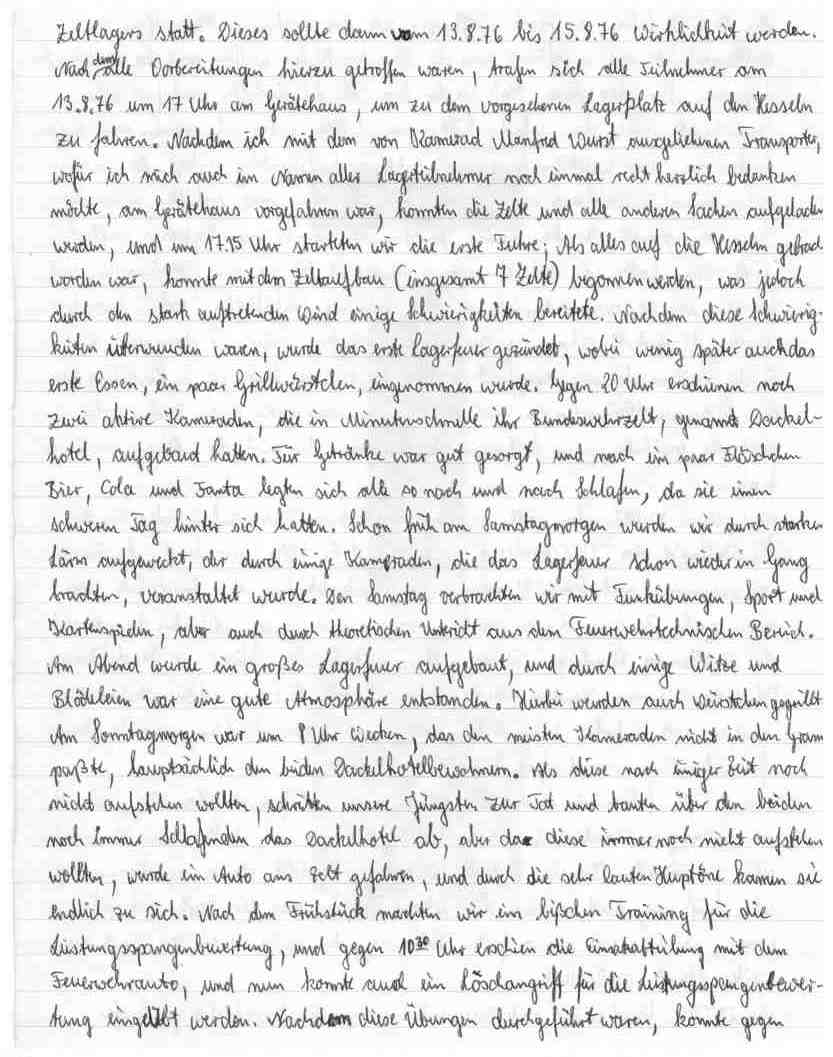 Zeltlagers statt. Dieses sollte dann vom 13.8.76 bis 15.8.76 Wirklichkeit werden.
Nach dem alle Vorbereitungen hierzu getroffen waren, trafen sich alle Teilnehmer am
13.8.76 um 17 Uhr am Gerätehaus, um zu dem vorgesehenen Lagerplatz auf den Hesseln
zu fahren. Nachdem ich mit dem von Kamerad Manfred Wurst ausgeliehenen Transporter,
wofür ich mich auch im Namen aller Lagerteilnehmer noch einmal recht herzlich bedanken
möchte, am Gerätehaus vorgefahren war, konnten die Zelte und alle anderen Sachen aufgeladen
werden, und um 17.15 Uhr starteten wir die erste Fuhre; Als alles auf die Hesseln gebrad
worden war, konnte mit dem Zeltaufbau (insgesamt 7 Zelte) begonnen werden, was jedoch
durch den stark auftretenden Wind einige Schwierigkeiten bereitete. Nachdem diese Schwierig-
keiten überwunden waren, wurde das erste Lagerfeuer gezündet, wobei wenig später auch das
erste Essen, ein paar Grillwürstchen, eingenommen wurde. Gegen 20 Uhr erschienen noch
zwei aktive Kameraden, die in Minutenschnelle ihr Bundeswehrzelt, genannt Dackel-
hotel, aufgebaut hatten. Für Getränke war gut gesorgt, und nach ein paar Fläschchen
Bier, Cola und Fanta legten sich alle so nach und nach Schlafen, da sie einen
schweren Tag hinter sich hatten. Schon früh am Samstagmorgen wurden wir durch starken
Lärm aufgeweckt, der durch einige Kameraden, die das Lagerfeuer schon wieder in Gang
brachten, veranstaltet wurde. Den Samstag verbrachten wir mit Funkübungen, Sport und
Kartenspielen, aber auch durch theoretischen Unterricht aus dem Feuerwehrtechnischen Bereich.
Am Abend wurde ein großes Lagerfeuer aufgebaut, und durch einige Witze und
Blödeleien war eine gute Atmosphäre entstanden. Hierbei wurden auch Würstchen gegrillt
Am Sonntagmorgen war um 8 Uhr Wecken, das den meisten Kameraden nicht in den Gram
paßte, hauptsächlich den beiden Dackelhotelbewohnern. Als diese nach einiger Zeit noch
nicht aufstehen wollten, schritten unsere Jüngsten zur Tat und bauten über den beiden
noch immer Schlafenden das Dackelhotel ab, aber da diese immer noch nicht aufstehen
wollten, wurde ein Auto ans Zelt gefahren, und durch die sehr lauten Huptöne kamen sie
endlich zu sich. Nach dem Frühstück machten wir ein bißchen Training für die
Leistungsspangenbewertung, und gegen 10³⁰ Uhr erschien die Einsatzabteilung mit dem
Feuerwehrauto, und nun konnte auch ein Löschangriff für die Leistungsspangenbewer-
tung eingeübt werden. Nachdem diese Übungen durchgeführt waren, konnte gegen